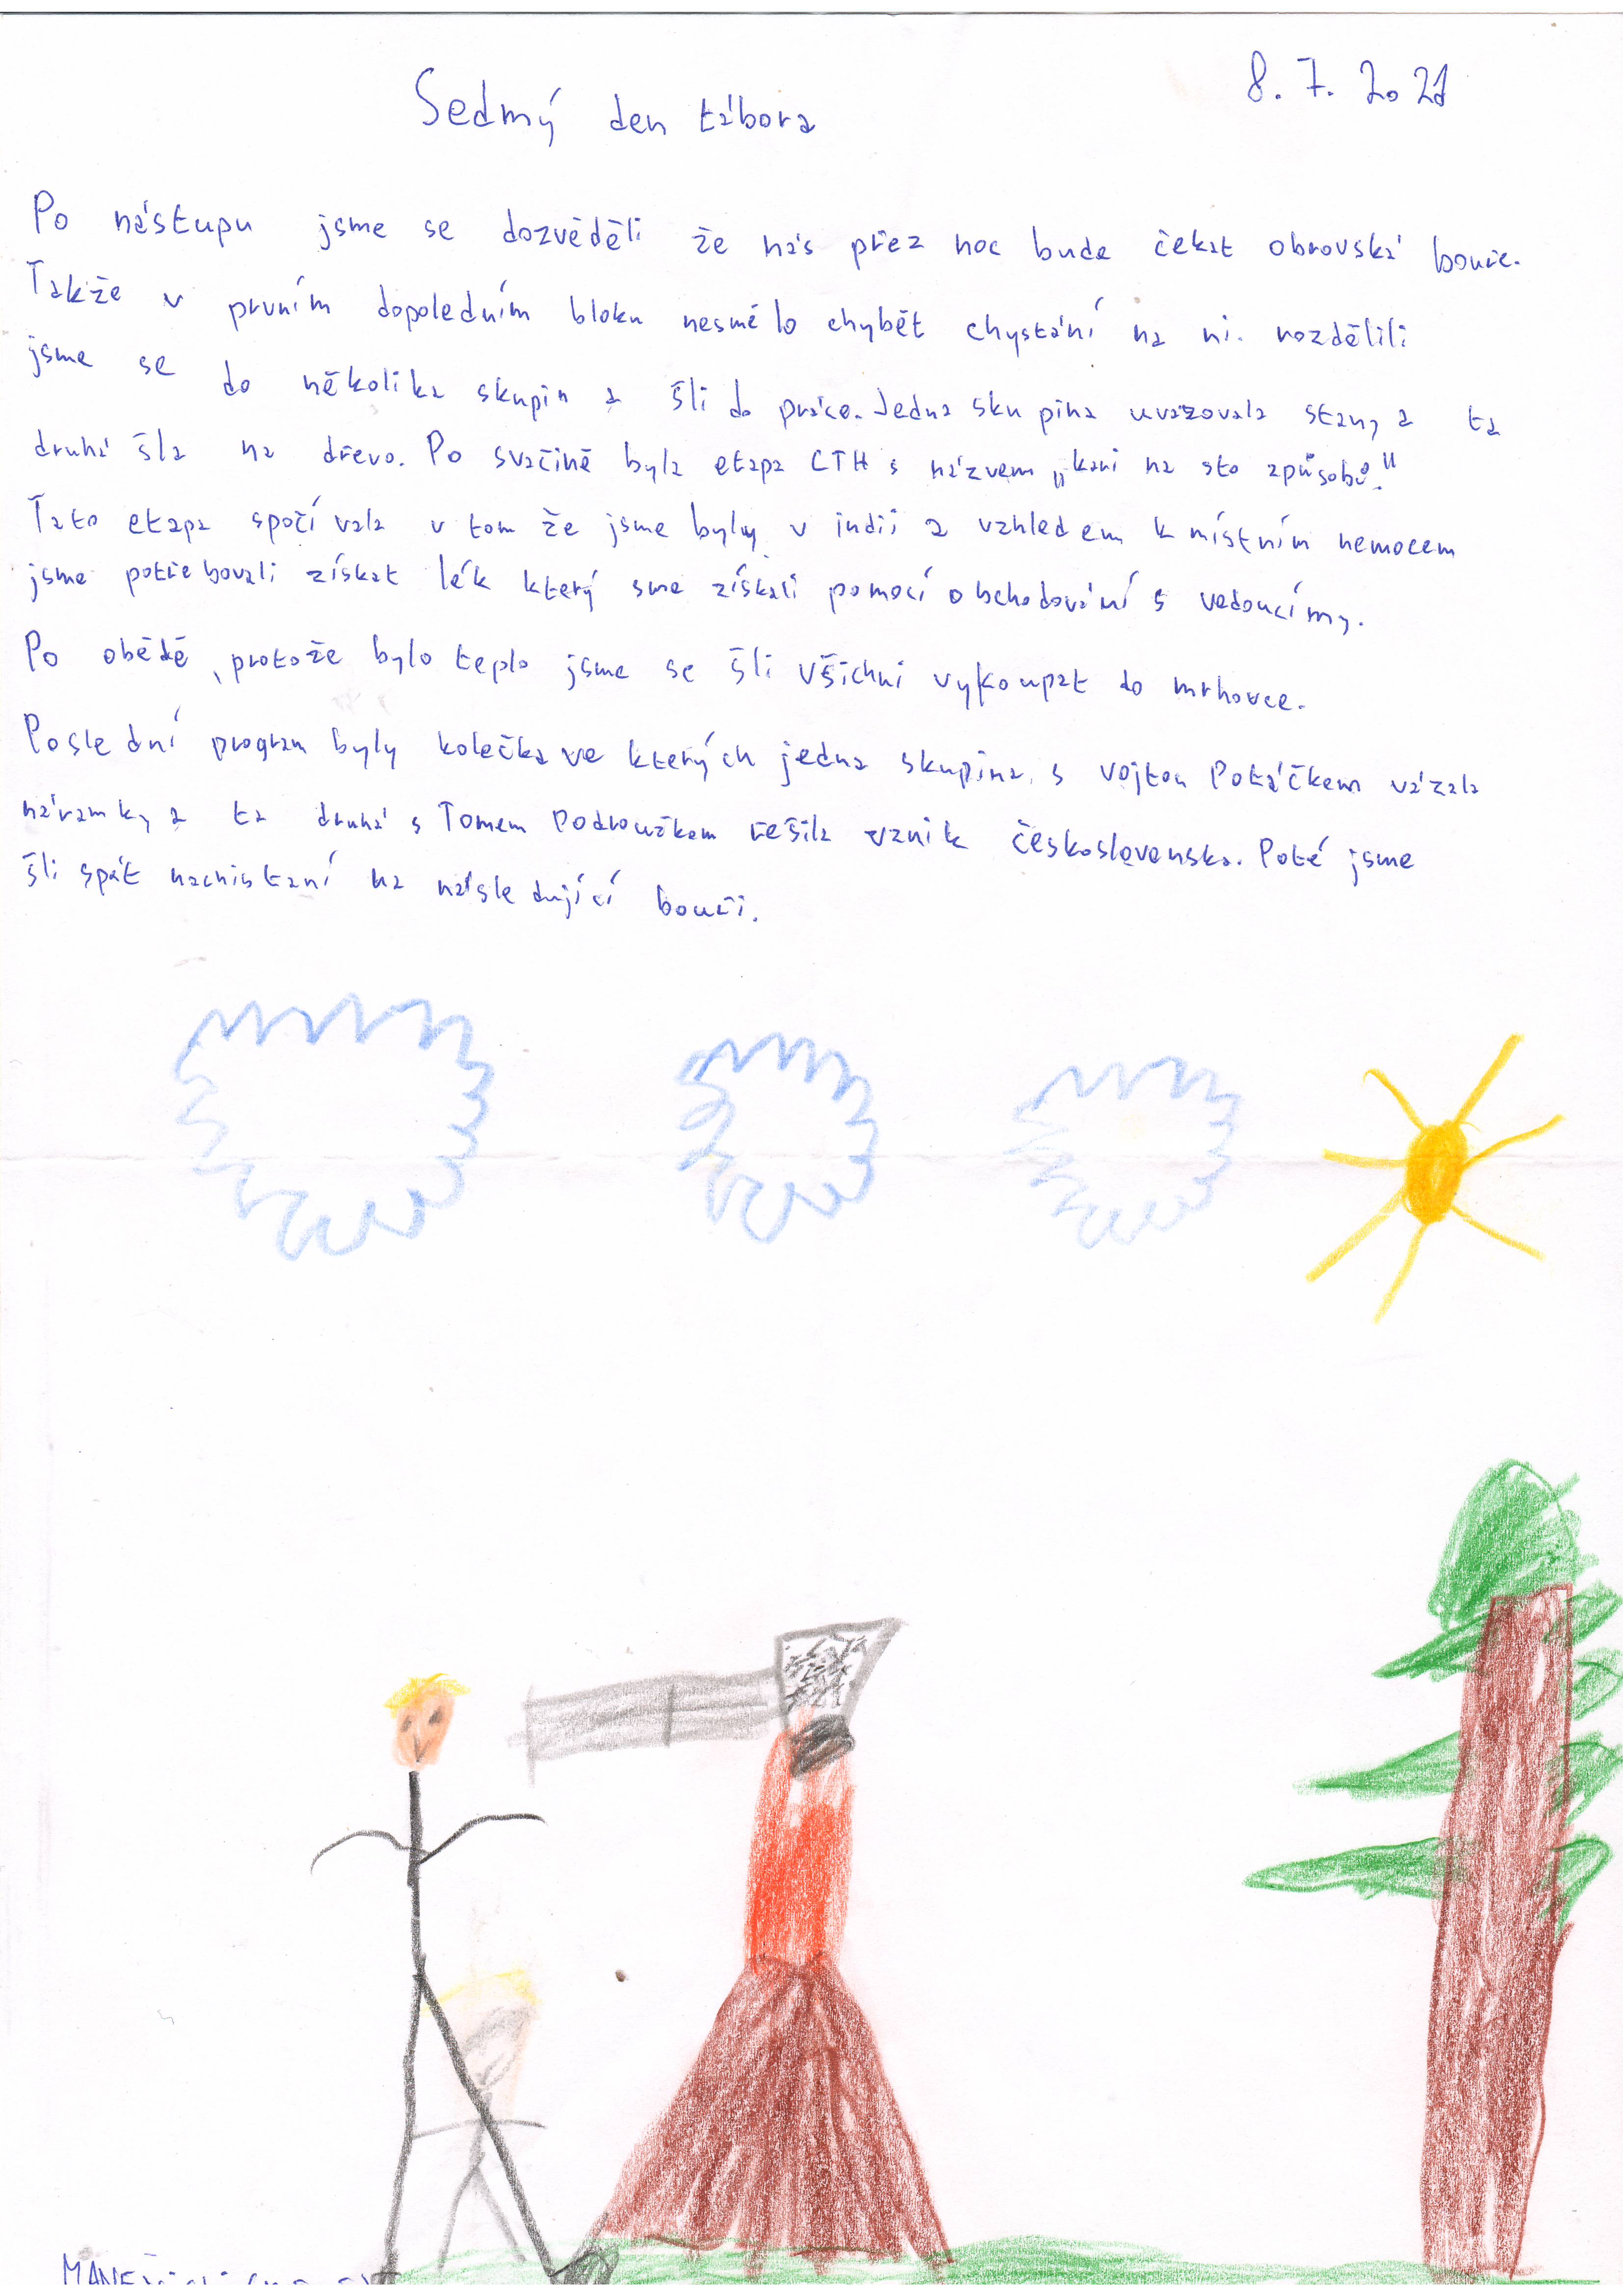 8. 7. 2021
Sedmý den tábora
Po nástupu jsme se dozvěděli že nás přez noc bude čekat obrovská bouře.
Takže v prvním dopoledním bloku nesmělo chybět chystání na ni. rozdělili
jsme se do několika skupin a šli do práce. Jedna skupina uvazovala stany a ta
druhá šla na dřevo. Po svačině byla etapa CTH s názvem „kari na sto způsobů."
Tato etapa spočívala v tom že jsme byly v indii a vzhledem k místním nemocem
jsme potřebovali získat lék který sme získali pomocí obchodování s vedoucímy.
Po obědě, protože bylo teplo jsme se šli všichni vykoupat do mrhovce.
Poslední program byly kolečka ve kterých jedna skupina s vojtou Potáčkem vázala
náramky a ta druhá s Tomem Podroužkem řešila vznik československa. Poté jsme
šli spát nachistaní na následující bouři.